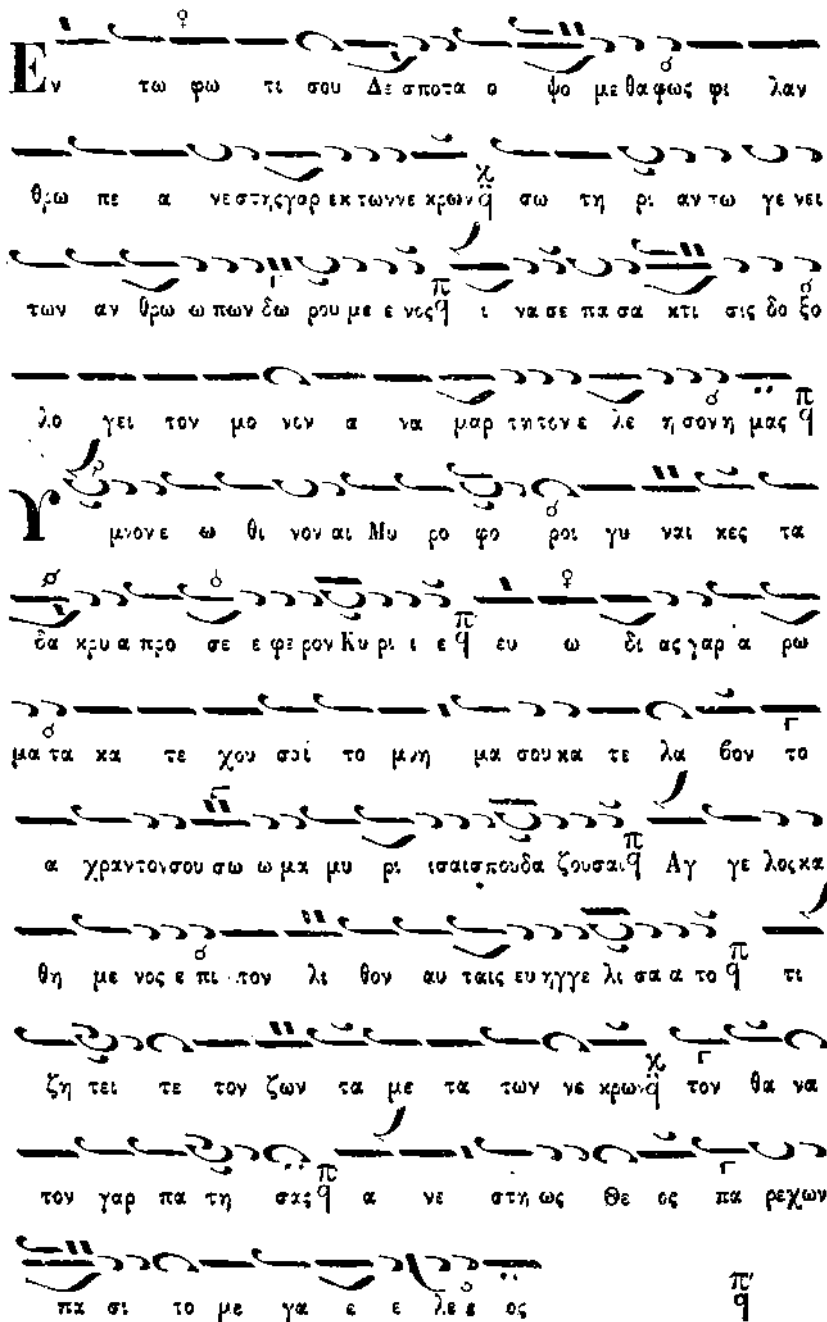 Εν τω φω τι σου Δε σποτα ο ψο με θα φως φι λαν
θρω πε α νε στης γαρ εκ των νε κρων σω τη ρι αν τω γε νει
των αν θρω ω πων δω ρου με ε νος ι να σε πα σα κτι σις δο ξο
λο γει τον μο νον α να μαρ τη τον ε λε η σον η μας
Υ μνον ε ω θι νον αι Μυ ρο φο ροι γυ ναι κες τα
δα κρυ α προ σε ε φε ρον Κυ ρι ι ε ευ ω δι ας γαρ α ρω
μα τα κα τε χου σαι το μνη μα σου κα τε λα βον το
α χραν τον σου σω ω μα μυ ρι ισαι σπου δα ζου σαι Αγ γε λος κα
θη με νος ε πι τον λι θον αυ ταις ευ ηγ γε λι σα α το τι
ζη τει τε τον ζων τα με τα των νε κρων τον θα να
τον γαρ πα τη σας α νε στη ως Θε ος πα ρε χων
πα σι το με γα ε ε λε ε ος